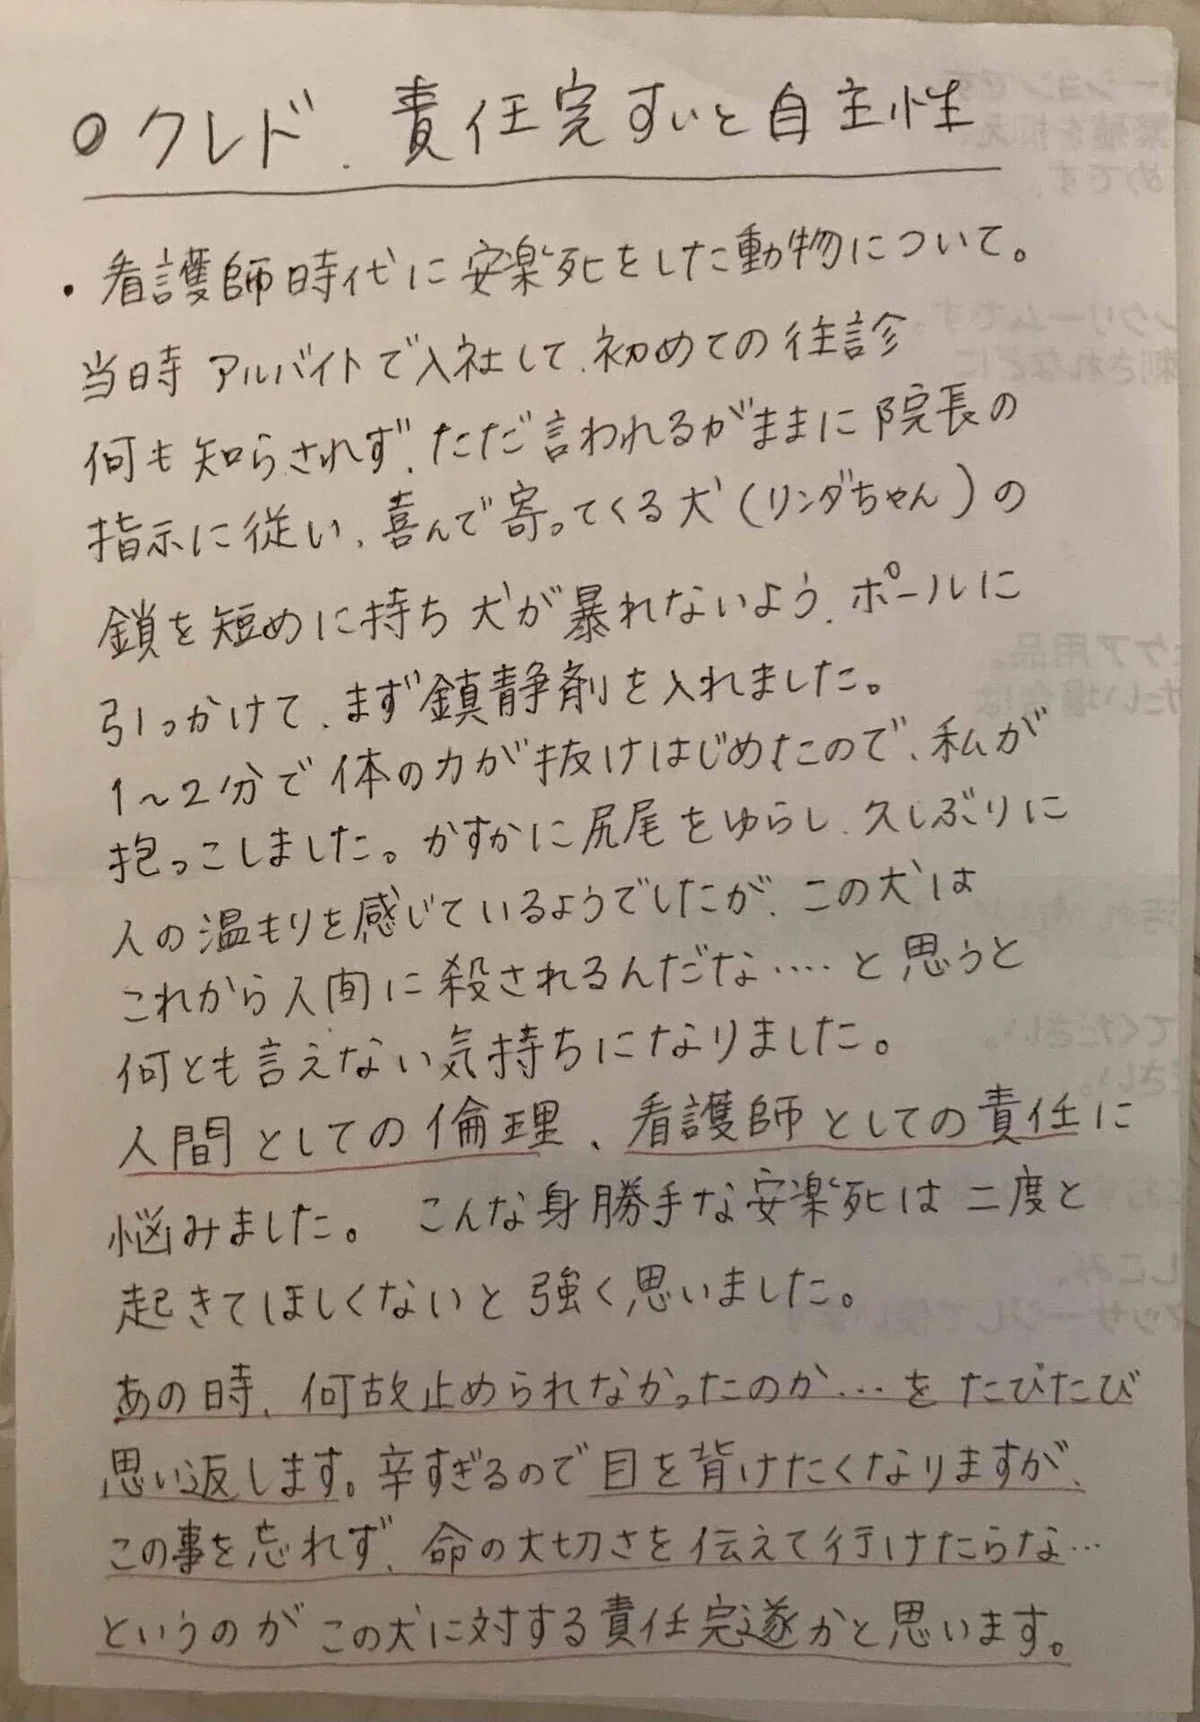 ○クレド、責任完すいと自主性
・看護師時代に安楽死をした動物について。
当時アルバイトで入社して、初めての往診
何も知らされず、ただ言われるがままに院長の
指示に従い、喜んで寄ってくる犬(リンダちゃん)の
鎖を短めに持ち犬が暴れないよう、ポールに
引っかけて、まず鎮静剤を入れました。
1~2分で体の力が抜けはじめたので、私が
抱っこしました。かすかに尻尾をゆらし、久しぶりに
人の温もりを感じているようでしたが、この犬は
これから人間に殺されるんだな‥‥と思うと
何とも言えない気持ちになりました。
人間としての倫理、看護師としての責任に
悩みました。こんな身勝手な安楽死は二度と
起きてほしくないと強く思いました。
あの時、何故止められなかったのか…をたびたび
思い返します。辛すぎるので目を背けたくなりますが、
この事を忘れず、命の大切さを伝えて行けたらな…
というのがこの犬に対する責任完遂かと思います。